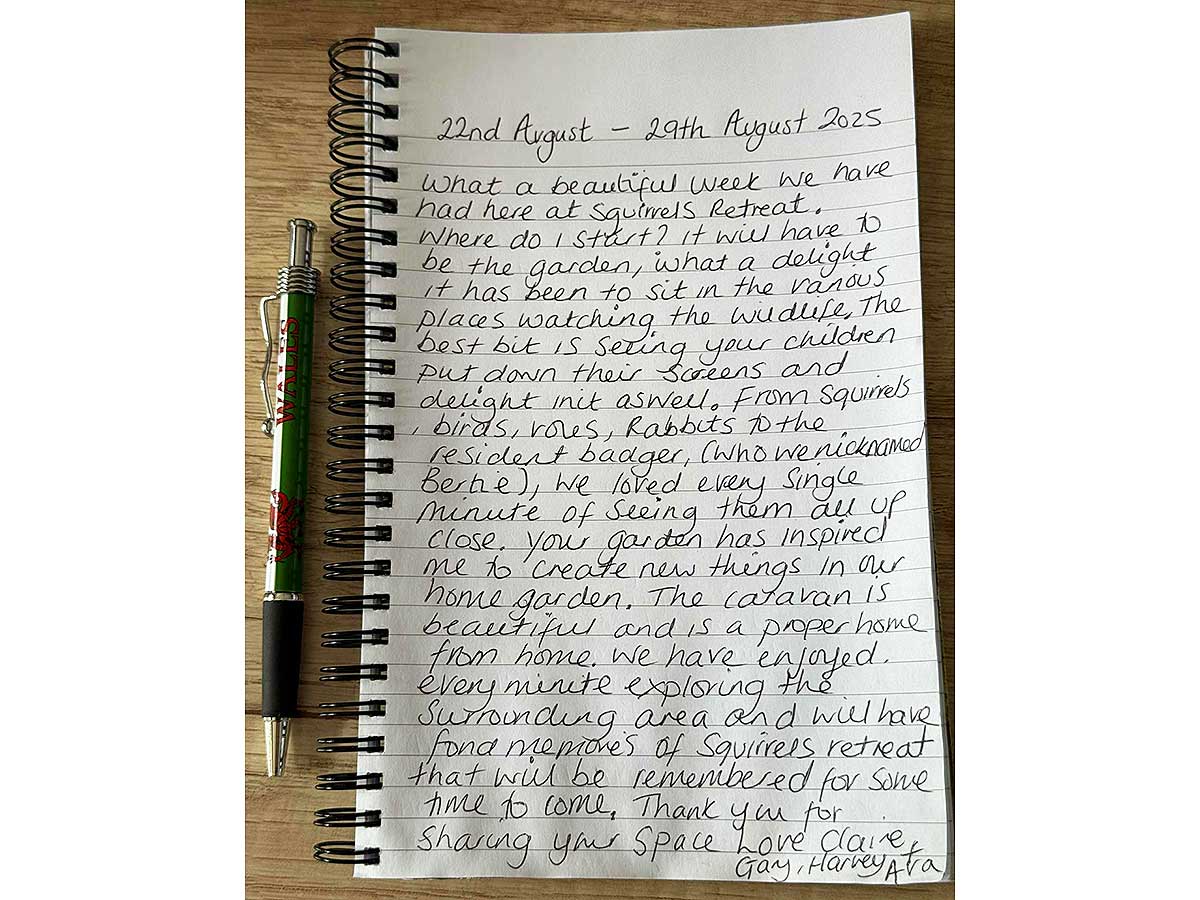 WALES
22nd August – 29th August 2025
What a beautiful week we have
had here at Squirrels Retreat.
Where do I start? It will have to
be the garden, what a delight
it has been to sit in the various
places watching the wildlife, The
best bit is seeing your children
put down their screens and
delight init aswell. From Squirrels
, birds, voles, Rabbits to the
resident badger, (who we nicknamed
Bertie), we loved every single
minute of seeing them all up
close. Your garden has inspired
me to create new things in our
home garden. The caravan is
beautiful and is a proper home
from home. We have enjoyed.
every minute exploring the
surrounding area and will have
fond memories of Squirrels retreat
that will be remembered for some
time to come. Thank you for
sharing your space Love Claire,
Gary, Harvey